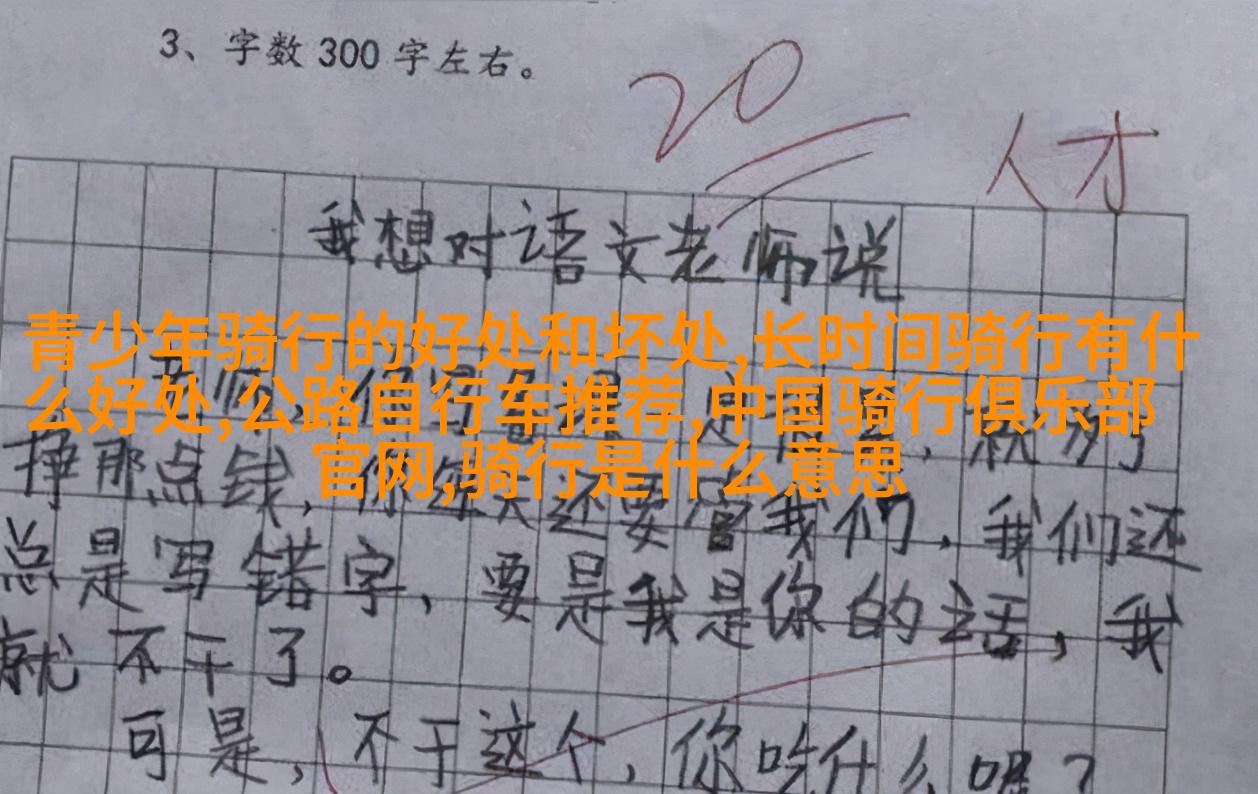 3、字数 300 字左右。
20
人才
我想对语文老师说
青少年骑行的好处和坏处,长时间骑行有什
么好处,公路自行车推荐,中国骑行俱乐部
官网,骑行是什么意思
挣那点钱，你每天还要管我们，我们还
总是写错字，要是我是你的话，我
就不干了。
可是，不干这个，你吃什么呢？